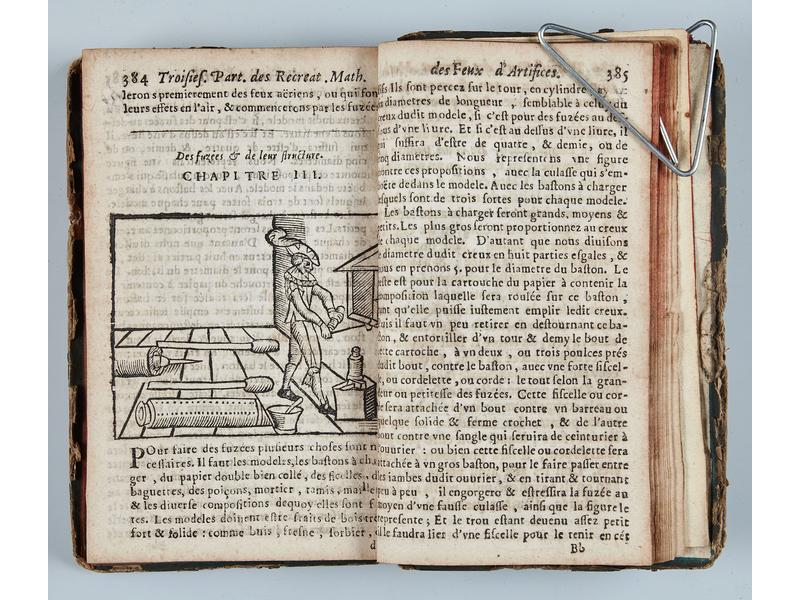 384 Troisies. Part. des Recreat. Math.
lerons premierement des feux aëriens, ou qui font
leurs effets en l'air, & commencerons par les fuzées
Des fuzées & de leur structure.
CHAPITRE III.
POur faire des fuzées plusieurs choses sont n
cessaires. Il faut les modeles, les bastons à cha
ger, du papier double bien collé, des ficelles, d
baguettes, des poiçons, mortier, tamis,
& les diverse compositions dequoy elles sont f
tes. Les modeles doiuent estre faits de bois tre
fort & solide: comme buis, fresne, sorbier,
des Feux d'Artifices. 385
ifs Ils sont percez sur le tour, en cylindre,
diametres de longueur, semblable à celuy du
creux dudit modele, si c'est pour des fuzées au des-
sus d'vne liure. Et si c'est au dessus d'vne liure, il
suffira d'estre de quatre, & demie, ou de
inq diametres. Nous representons vne figure
contre ces propositions, auec la culasse qui s'em-
boëte dedans le modele. Auec les bastons à charger
esquels sont de trois sortes pour chaque modele.
Les bastons à charger seront grands, moyens &
petits. Les plus gros seront proportionnez au creux
de chaque modele. D'autant que nous diuisons
le diametre dudit creux en huit parties esgales, &
ous en prenons 5. pour le diametre du baston. Le
reste est pour la cartouche du papier à contenir la
composition laquelle sera roulée sur ce baston,
tant qu'elle puisse iustement emplir ledit creux.
Puis il faut vn peu retirer en destournant ce ba-
ston, & entortiller d'vn tour & demy le bout de
cette cartroche, à vn deux, ou trois poulces prés
dudit bout, contre le baston, auec vne forte fiscel-
le, ou cordelette, ou corde: le tout selon la gran-
deur ou petitesse des fuzées. Cette fiscelle ou cor-
de sera attachée d'vn bout contre vn barreau ou
quelque solide & ferme crochet, & de l'autre
bout contre vne sangle qui seruira de ceinturier à
l'ouurier: ou bien cette fiscelle ou cordelette sera
attachée à vn gros baston, pour le faire passer entre
les iambes dudit ouurier, & en tirant & tournant
peu à peu, il engorgero & estressira la fuzée au
moyen d'vne fausse culasse, ainsi que la figure le
represente; Et le trou estant deuenu assez petit
il le faudra lier d'vne fiscelle pour le tenir en cét
Bb